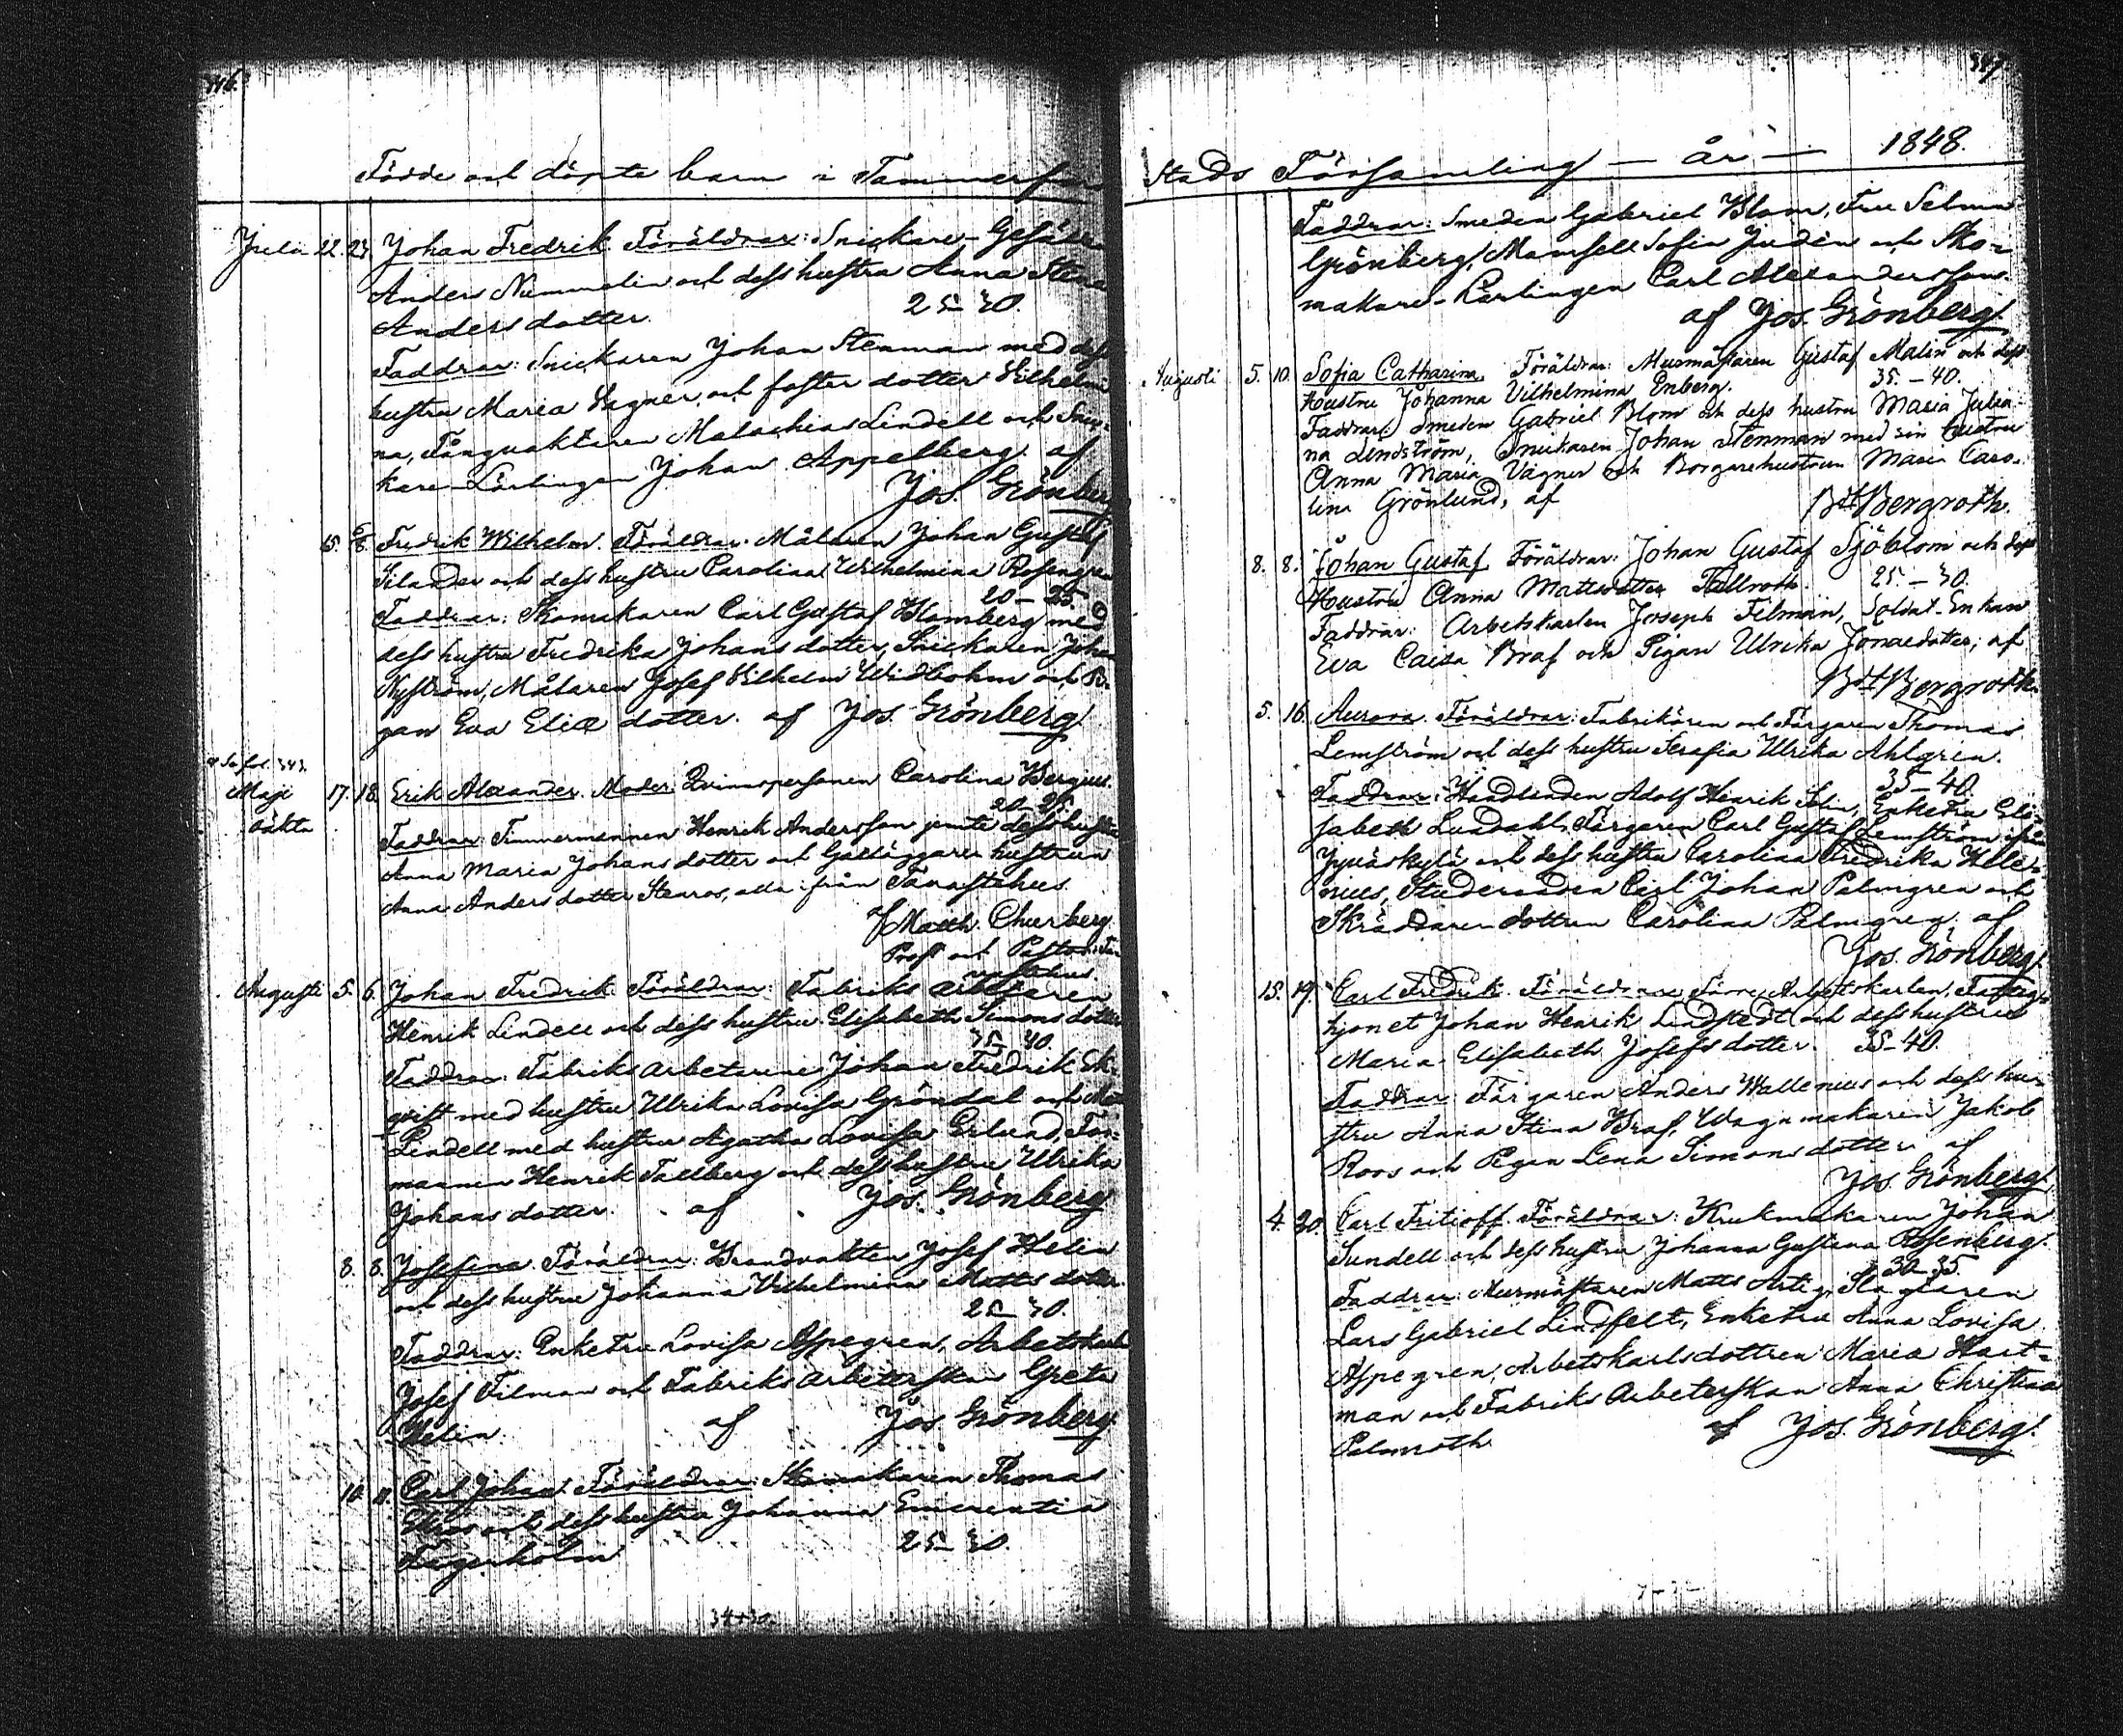 346.
Födde och döpte barn i Tammerfors
Juli 22. 23. Johan Fredrik. Föräldrar: Snickare-Gesällen
Anders Nummelin och dess hustru Anna Stina
Anders dotter. 25-30.
Faddrar: Snickaren Johan Stenman med dess
hustru Maria Vagner och foster dotter Vilhelmi-
na, Fångvaktaren Malachias Lindell och Snic-
kare-Lärlingen Johan Appelberg. af
Jos. Grönberg
15. 6/8. Fredrik Wilhelm. Föräldrar: Målaren Johan Gustaf
Silander och dess hustru Carolina Wilhelmina Rosengren
20-25.
Faddrar: Skomakaren Carl Gustaf Blomberg med
dess hustru Fredrika Johans dotter, Snickaren Johan
Nyström, Målaren Josef Vilhelm Widbohm och Pi-
gan Eva Eliæ dotter. af Jos. Grönberg.
Se fol. 343.
Maji 17. 18. Erik Alexander. Moder: Qvinnspersonen Carolina Bergius.
oäkta 20-25.
Faddrar: Timmermannen Henrik Andersson jemte dess hustru
Anna Maria Johans dotter och Gatläggaren hustrun
Anna Anders dotter Stenros, alla från Tavastehus.
af Matth. Churberg
Prost och Pastor i Ta-
vastehus
Augusti 5. 6. Johan Fredrik. Föräldrar: Fabriks arbetaren
Henrik Lindell och dess hustru Elisabeth Simons dotter
35-40.
Faddrar: Fabriks arbetarne Johan Fredrik Ek-
qvist med hustru Ulrika Lovisa Gröndal och
Lindell med hustru Agatha Lovisa Erlund, For-
mannen Henrik Tallberg och dess hustru Ulrika
Johans dotter. af Jos. Grönberg
8. 8. Josefina. Föräldrar: Brandvakten Josef Helin
och dess hustru Johanna Vilhelmina Matts dotter.
25-30.
Faddrar: Enkefru Lovisa Aspegren, Arbetskarlen
Josef Filman och Fabriks arbeterskan Greta
Helin af Jos. Grönberg
10. 11. Carl Johan. Föräldrar: Skomakaren Thomas
och dess hustru Johanna Emerentia
Fagerholm 25-30.
347
Stads Församling — år — 1848.
Faddrar: Smeden Gabriel Blom, Fru Selma
Grönberg, Mamsell Sofia Judén och Sko-
makare-Lärlingen Carl Alexandersson.
af Jos. Grönberg.
Augusti 5. 10. Sofia Catharina. Föräldrar: Murmästaren Gustaf Malin och dess
Hustru Johanna Vilhelmina Enberg. 35.-40.
Faddrar: Smeden Gabriel Blom och dess hustru Maria Julia-
na Lindström, Snickaren Johan Stenman med sin hustru
Anna Maria Vagner och Borgarehustrun Maria Caro-
lina Grönlund, af
Bdt Bergroth.
8. 8. Johan Gustaf. Föräldrar: Johan Gustaf Sjöblom och dess
Hustru Anna Mattsdotter Tallroth. 25.-30.
Faddrar: Arbetskarlen Joseph Filman, Soldat-Enkan
Eva Caisa Braf och Pigan Ulrika Jonaedotter; af
Bdt Bergroth.
5. 16. Aurora. Föräldrar: Fabrikören och Färgaren Thomas
Lemström och dess hustru Serafia Ulrika Ahlgren.
35-40.
Faddrar: Handlanden Adolf Henrik Solin, Enkefru Eli-
sabeth Lundahl, Färgaren Carl Gustaf Lemström ifrån
Jyväskylä och dess hustru Carolina Fredrika Hele-
nius, Studeranden Carl Johan Palmgren och
Skräddaren dottren Carolina Palmgren. af
Jos. Grönberg.
15. 19. Carl Fredrik. Föräldrar: Förre Arbetskarlen, Fattig-
hjonet Johan Henrik Lindstedt och dess hustru
Maria Elisabeth Josefs dotter. 35-40.
Faddrar: Färgaren Anders Wallenius och dess hu-
stru Anna Stina Braf, Wagnmakaren Jakob
Roos och Pigan Lena Simons dotter af
Jos. Grönberg.
4. 20. Carl Fritioff. Föräldrar: Krukmakaren Johan
Sundell och dess hustru Johanna Gustava Rosenberg.
30-35.
Faddrar: Murmästaren Matts Artig, Slagtaren
Lars Gabriel Lindfelt, Enkefru Anna Lovisa
Aspegren, Arbetskarlsdottren Maria Hart-
man och Fabriks Arbeterskan Anna Christina
Palmroth af Jos. Grönberg.